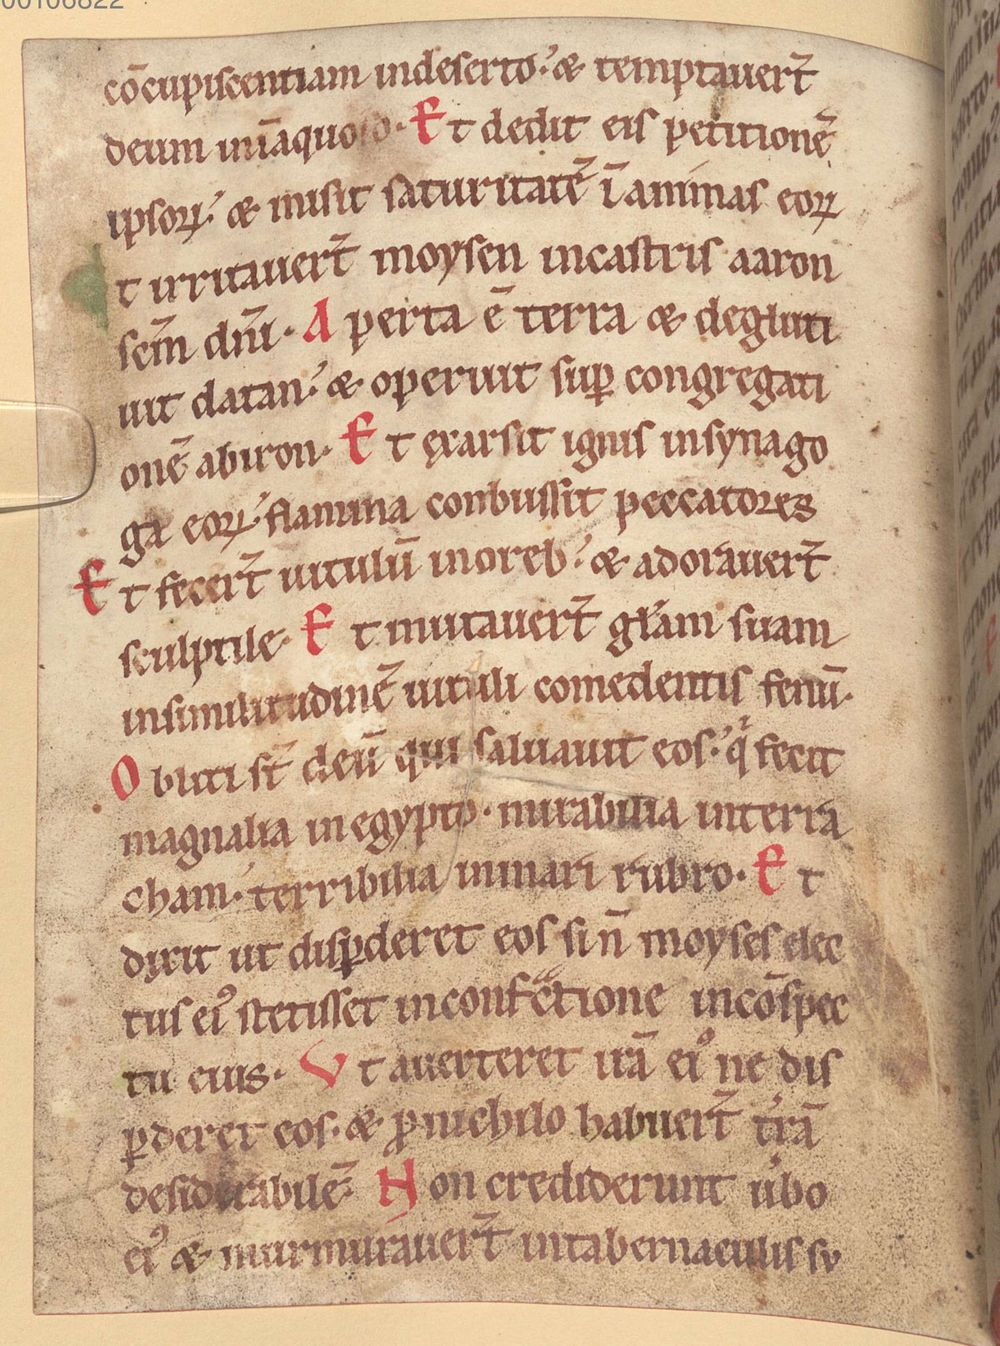 00106822
cōcupiscentiam indeserto. & temptauer̄t
deum iniāquoso. Et dedit eis petitionē
ipsoꝝ. & misit saturitatē ī animas eoꝝ
t irritauer̄t moysen incastris aaron
scm̄ dn̄i. Aperta ē terra & degluti
uit datan. & operuit suꝑ congregati
onē abiron. Et exarsit ignis insynago
ga eoꝝ. flamma conbussit peccatores
Et fecer̄t uitulū inoreb. & adorauer̄t
sculptile. Et mutauer̄t gl̄am suam
insimilitudinē uituli comedentis fenū.
Obliti st̄ deū qui saluauit eos. qͥ fecit
magnalia inegypto. mirabilia interra
cham. terribilia inmari rubro. Et
dixit ut disꝑderet eos si n̄ moyses elec
tus eiꝰ stetisset inconfc̄tione incōspec
tu eius. Vt auerteret irā eiꝰ ne dis
ꝑderet eos. & ꝓ nichilo habuer̄t tr̄ā
desiderabilē. Non crediderunt ūbo
eiꝰ & murmurauer̄t intabernaculis su